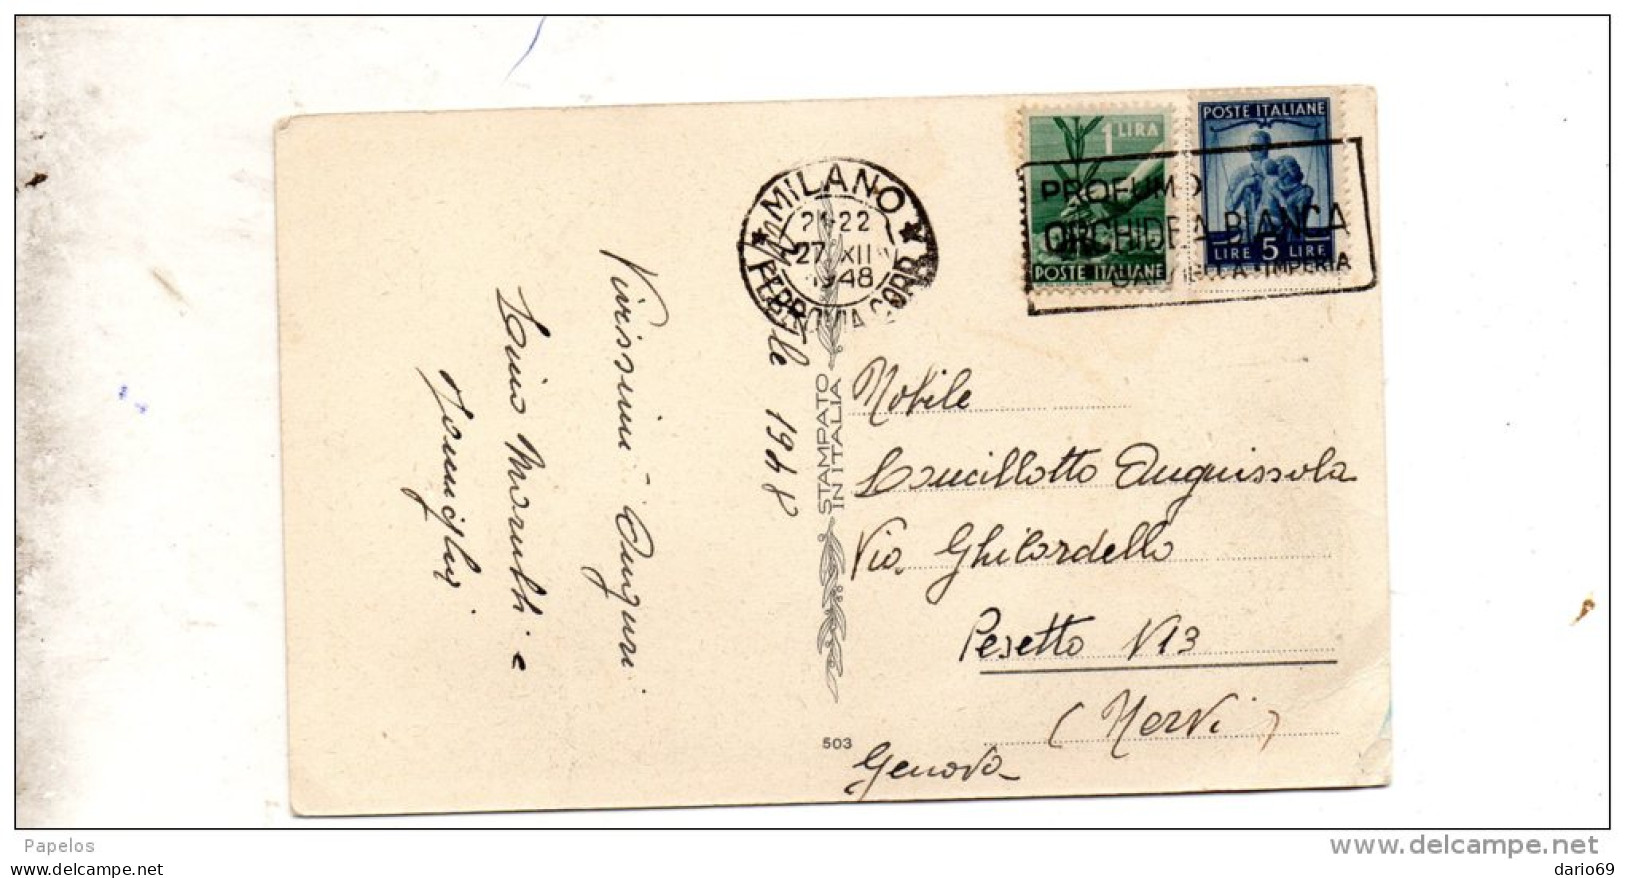 1 LIRA
POSTE ITALIANE
POSTE ITALIANE
LIRE 5 LIRE
PROFUMO
ORCHIDEA BIANCA
IMPERIA
MILANO
21-22
27 XII
1948
FERROVIA CORR.
1948
Vivissimi Auguri
Famiglia
STAMPATO
IN ITALIA
503
Nobile
Lancillotto Anguissola
Via Ghilardello
Pesetto N 13
(Nervi)
Genova
Papelos
www.delcampe.net
dario69